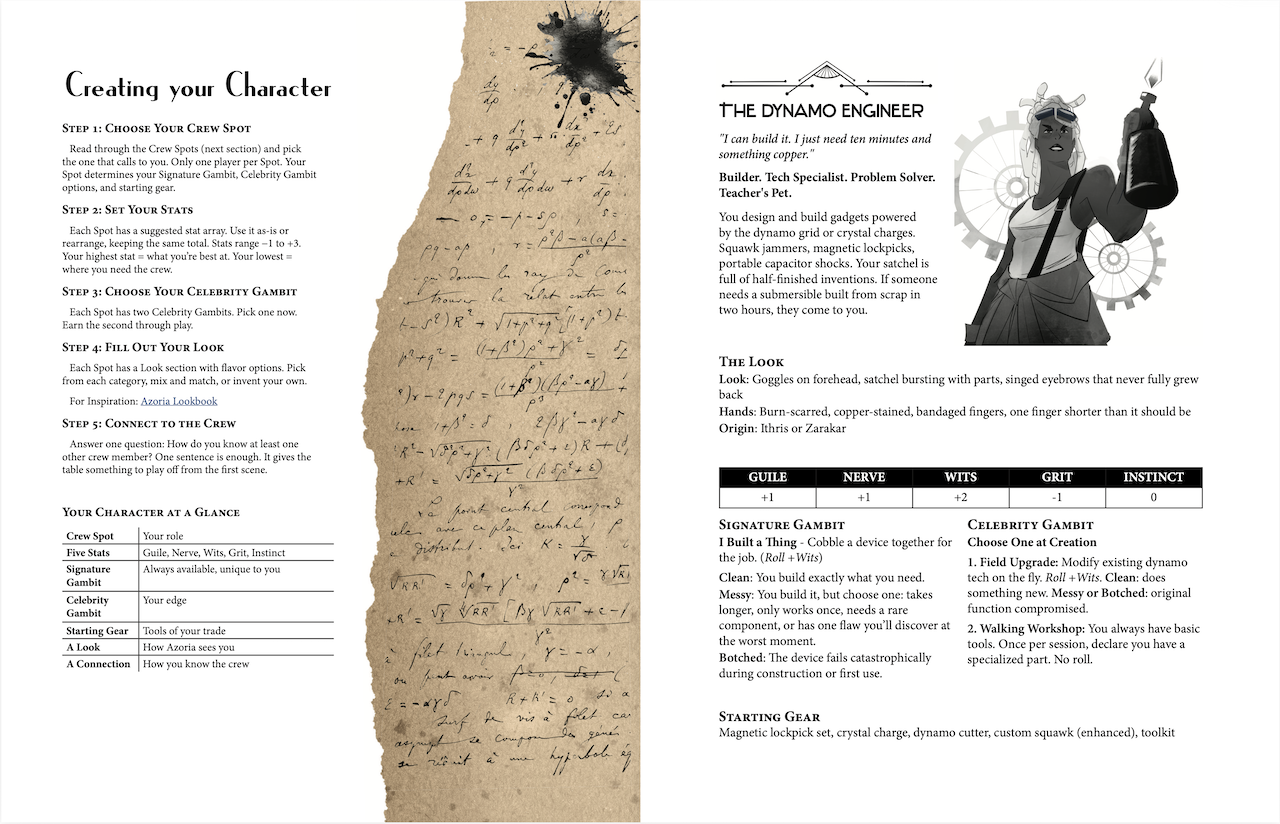 Creating your Character
STEP 1: CHOOSE YOUR CREW SPOT
Read through the Crew Spots (next section) and pick
the one that calls to you. Only one player per Spot. Your
Spot determines your Signature Gambit, Celebrity Gambit
options, and starting gear.
STEP 2: SET YOUR STATS
Each Spot has a suggested stat array. Use it as-is or
rearrange, keeping the same total. Stats range −1 to +3.
Your highest stat = what you're best at. Your lowest =
where you need the crew.
STEP 3: CHOOSE YOUR CELEBRITY GAMBIT
Each Spot has two Celebrity Gambits. Pick one now.
Earn the second through play.
STEP 4: FILL OUT YOUR LOOK
Each Spot has a Look section with flavor options. Pick
from each category, mix and match, or invent your own.
For Inspiration: Azoria Lookbook
STEP 5: CONNECT TO THE CREW
Answer one question: How do you know at least one
other crew member? One sentence is enough. It gives the
table something to play off from the first scene.
YOUR CHARACTER AT A GLANCE
Crew Spot Your role
Five Stats Guile, Nerve, Wits, Grit, Instinct
Signature Always available, unique to you
Gambit
Celebrity Your edge
Gambit
Starting Gear Tools of your trade
A Look How Azoria sees you
A Connection How you know the crew
THE DYNAMO ENGINEER
"I can build it. I just need ten minutes and
something copper."
Builder. Tech Specialist. Problem Solver.
Teacher's Pet.
You design and build gadgets powered
by the dynamo grid or crystal charges.
Squawk jammers, magnetic lockpicks,
portable capacitor shocks. Your satchel is
full of half-finished inventions. If someone
needs a submersible built from scrap in
two hours, they come to you.
THE LOOK
Look: Goggles on forehead, satchel bursting with parts, singed eyebrows that never fully grew
back
Hands: Burn-scarred, copper-stained, bandaged fingers, one finger shorter than it should be
Origin: Ithris or Zarakar
GUILE NERVE WITS GRIT INSTINCT
+1 +1 +2 -1 0
SIGNATURE GAMBIT
I Built a Thing - Cobble a device together for
the job. (Roll +Wits)
Clean: You build exactly what you need.
Messy: You build it, but choose one: takes
longer, only works once, needs a rare
component, or has one flaw you'll discover at
the worst moment.
Botched: The device fails catastrophically
during construction or first use.
CELEBRITY GAMBIT
Choose One at Creation
1. Field Upgrade: Modify existing dynamo
tech on the fly. Roll +Wits. Clean: does
something new. Messy or Botched: original
function compromised.
2. Walking Workshop: You always have basic
tools. Once per session, declare you have a
specialized part. No roll.
STARTING GEAR
Magnetic lockpick set, crystal charge, dynamo cutter, custom squawk (enhanced), toolkit